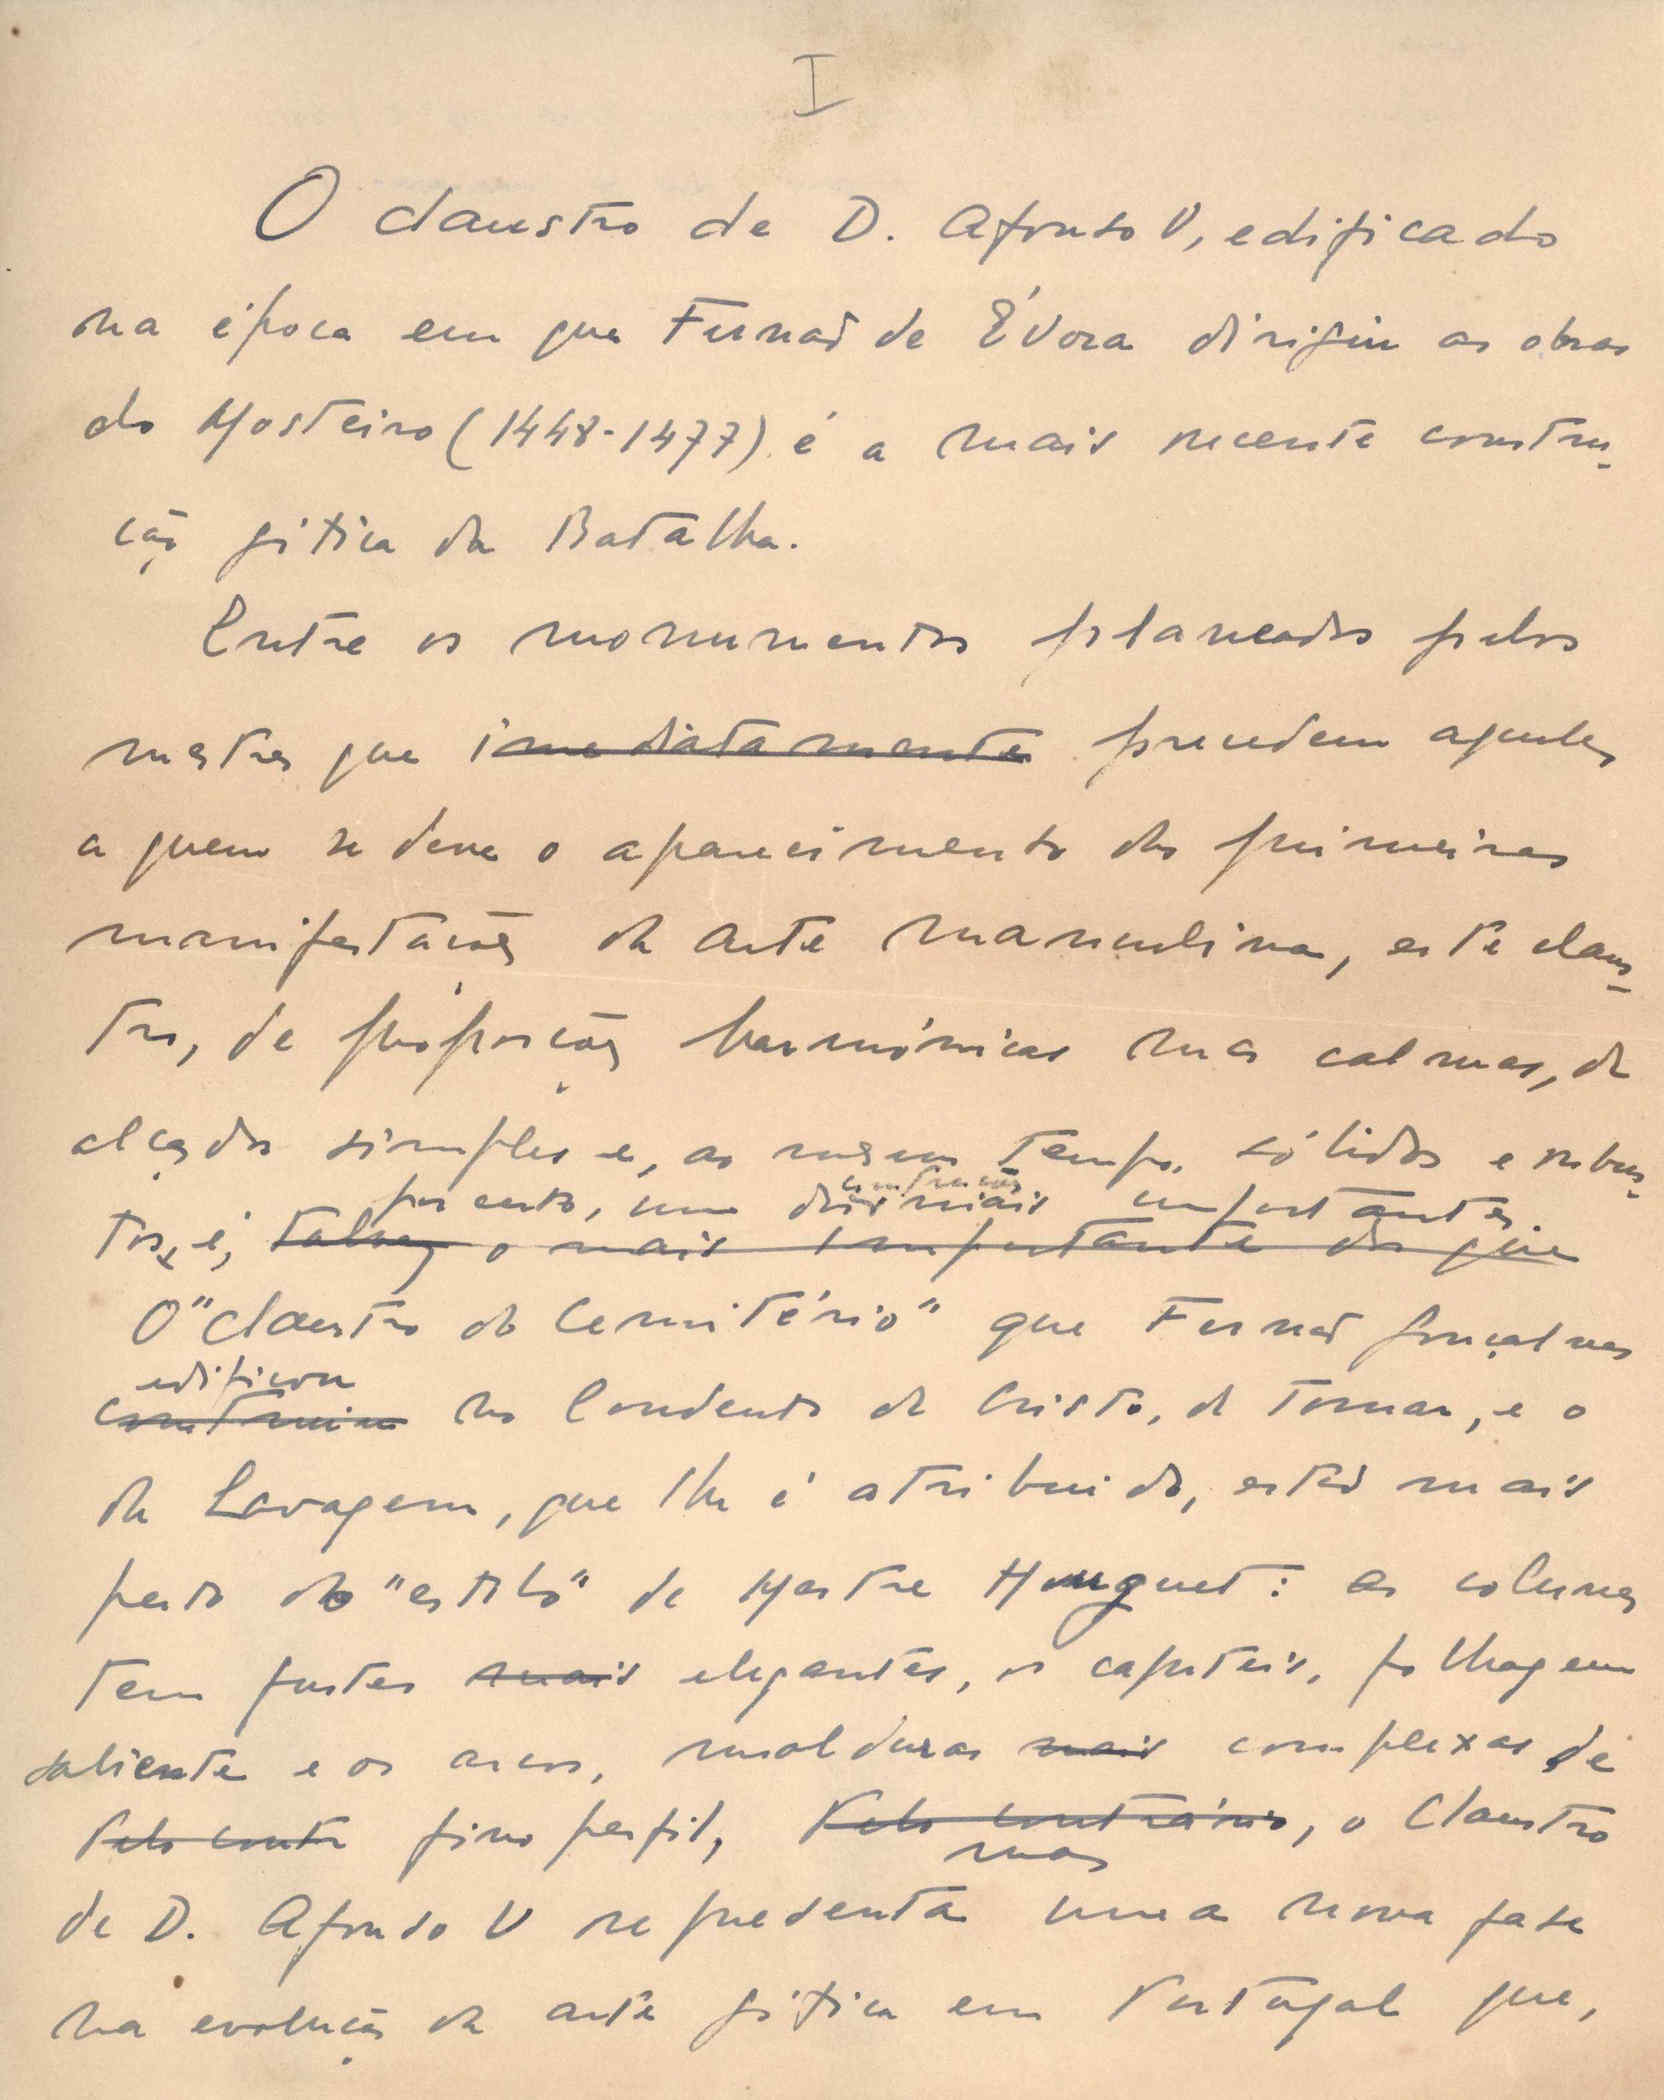 I
O claustro de D. Afonso V, edificado
na época em que Fernão de Évora dirigiu as obras
do Mosteiro (1448-1477) é a mais recente constru-
ção gótica da Batalha.
Entre os monumentos planeados pelos
mestres que imediatamente precedem aqueles
a quem se deve o aparecimento das primeiras
manifestações da arte manuelina, este claus-
tro, de proporções harmónicas mas calmas, de
alçados simples e, ao mesmo tempo, sólidos e robus-
construções
por certo, uma das mais importantes.
tos, é, talvez o mais importante dos que
O "Claustro do Cemitério" que Fernão Gonçalves
edificou
construiu no Convento de Cristo, de Tomar, e o
da Lavagem, que lhe é atribuido, estão mais
perto do "estilo" de Mestre Huguet: as colunas
tem fustes mais elegantes, os capiteis, folhagem
saliente e os arcos, molduras mais complexas de
Pelo contr fino perfil, Pelo contrário, o Claustro
mas
de D. Afonso V representa uma nova fase
na evolução da arte gótica em Portugal que,